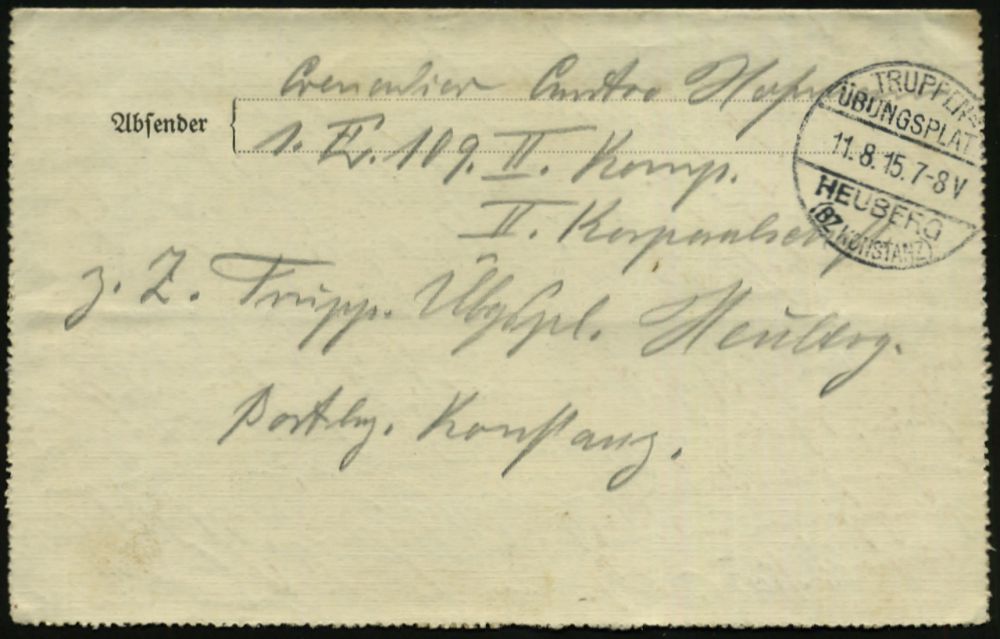 Grenadier Gustav
Absender
1. E. 109. II. Komp.
II. Korporalsch.
z. Z. Trupp. Übgspl. Heuberg.
Postbez. Konstanz.
TRUPPEN-
ÜBUNGSPLATZ
11.8.15.7-8V
HEUBERG
(BZ. KONSTANZ)